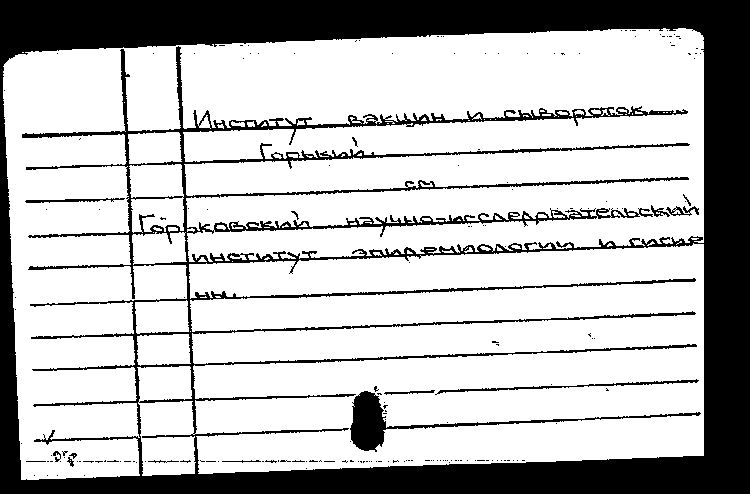 Институт вакцин и сывороток
Горький.
см
Горьковский научно-исследовательский
институт эпидемиологии и гигие
ны.